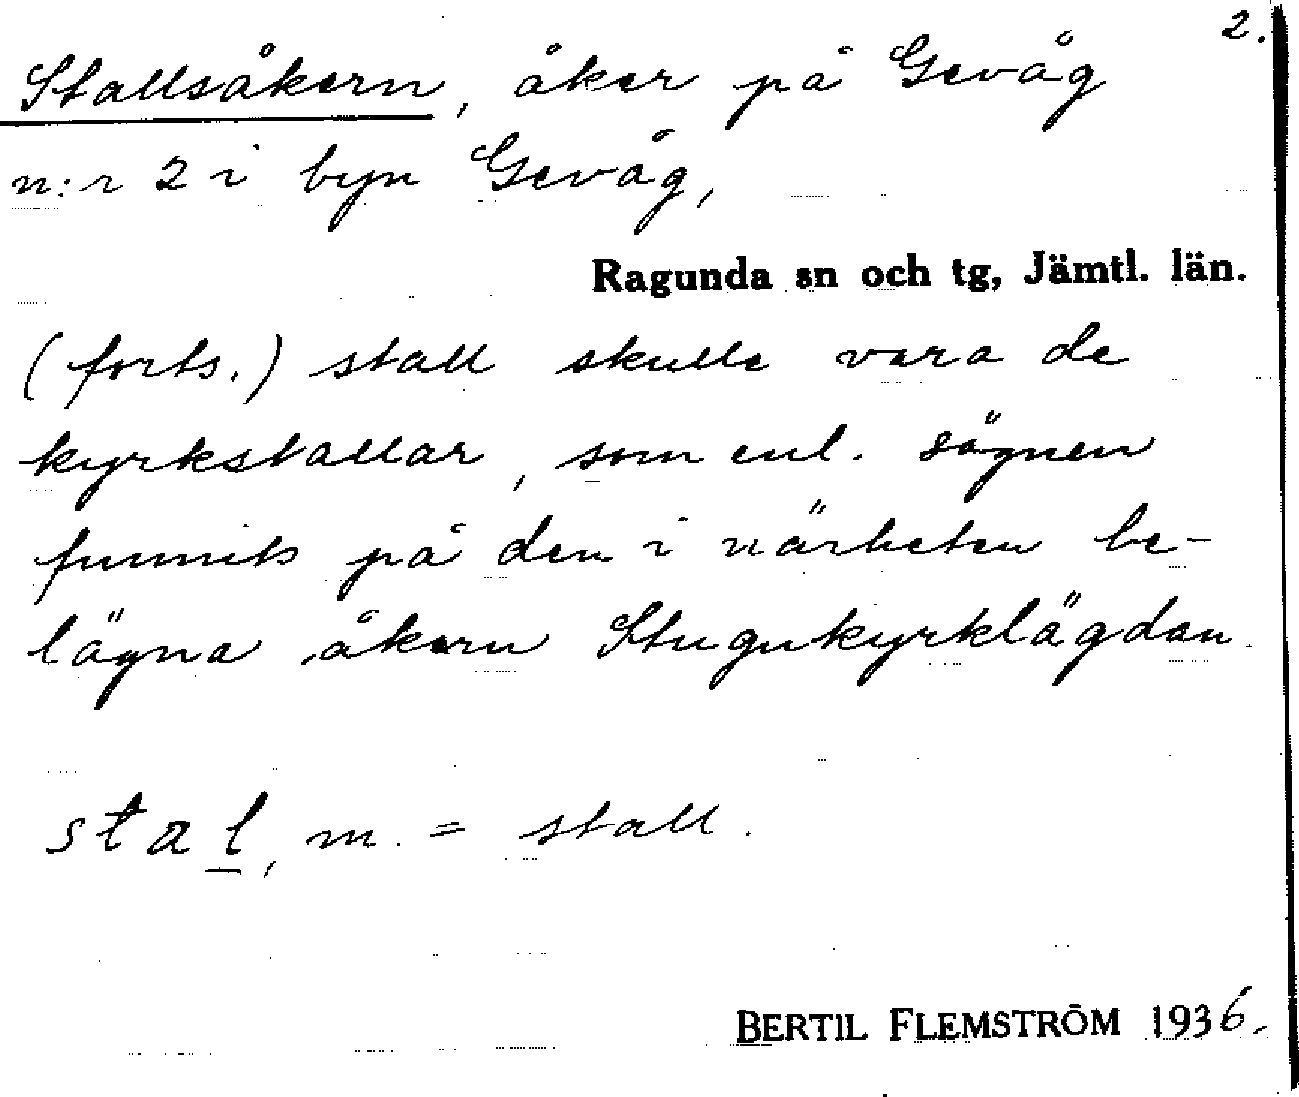 2.
Stallsåkern, åker på Gevåg
n:r 2 i byn Gevåg,
Ragunda sn och tg, Jämtl. län.
(forts.) stall skulle vara de
kyrkstallar, som enl. sägnen
funnits på den i närheten be-
lägna åkern Stugukyrklägdan
stal, m. = stall.
BERTIL FLEMSTRÖM 1936.